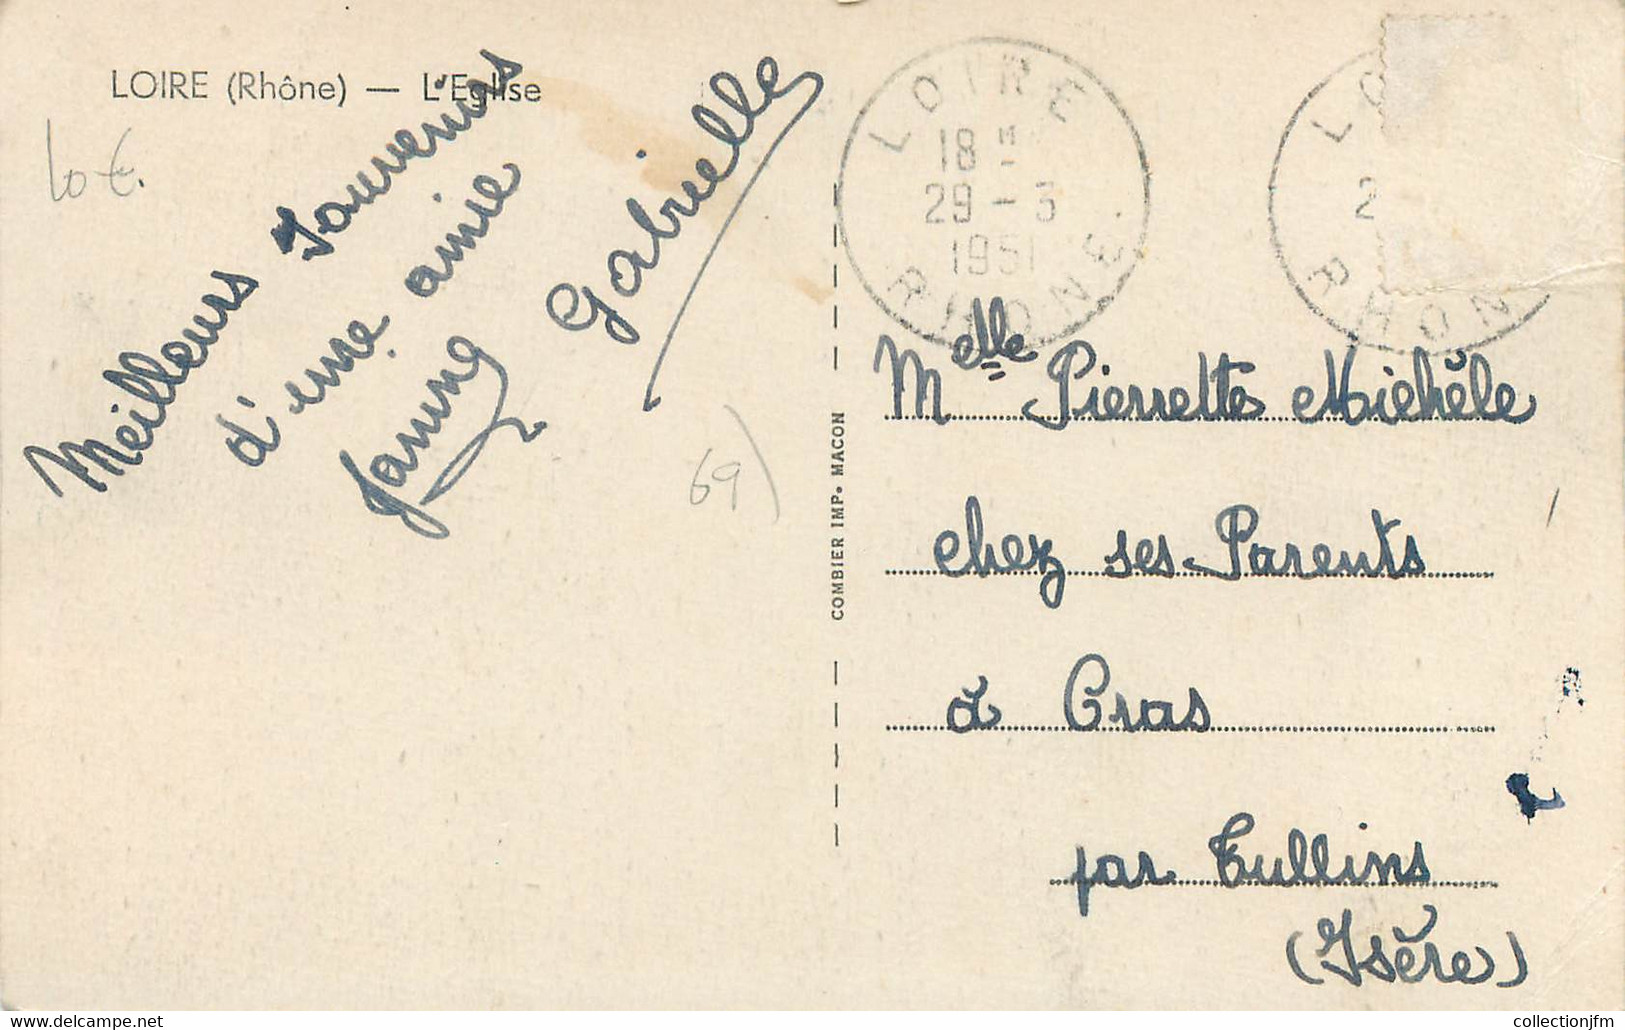 LOIRE (Rhône) — L'Eglise
10 €.
Meilleurs Souvenirs
d'une amie
Gabrielle
69)
COMBIER IMP. MACON
LOIRE
18 H
29 - 3
1951
RHONE
LO
2
RHON
Melle Pierrette Michèle
chez ses Parents
à Cras
par Tullins
(Isère)
collectionjfm